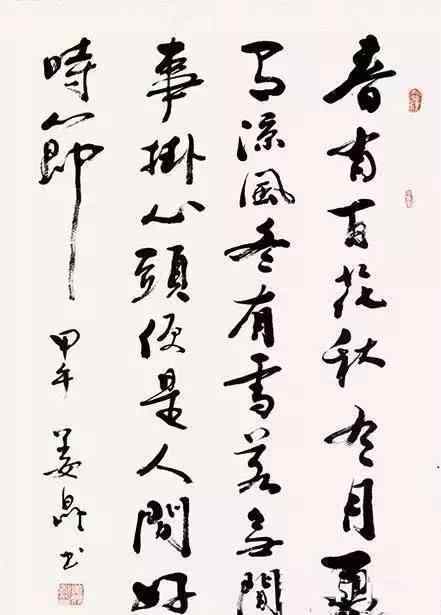 春有百花秋有月夏
有涼風冬有雪若無閒
事掛心頭便是人間好
時節
甲午 姜 书